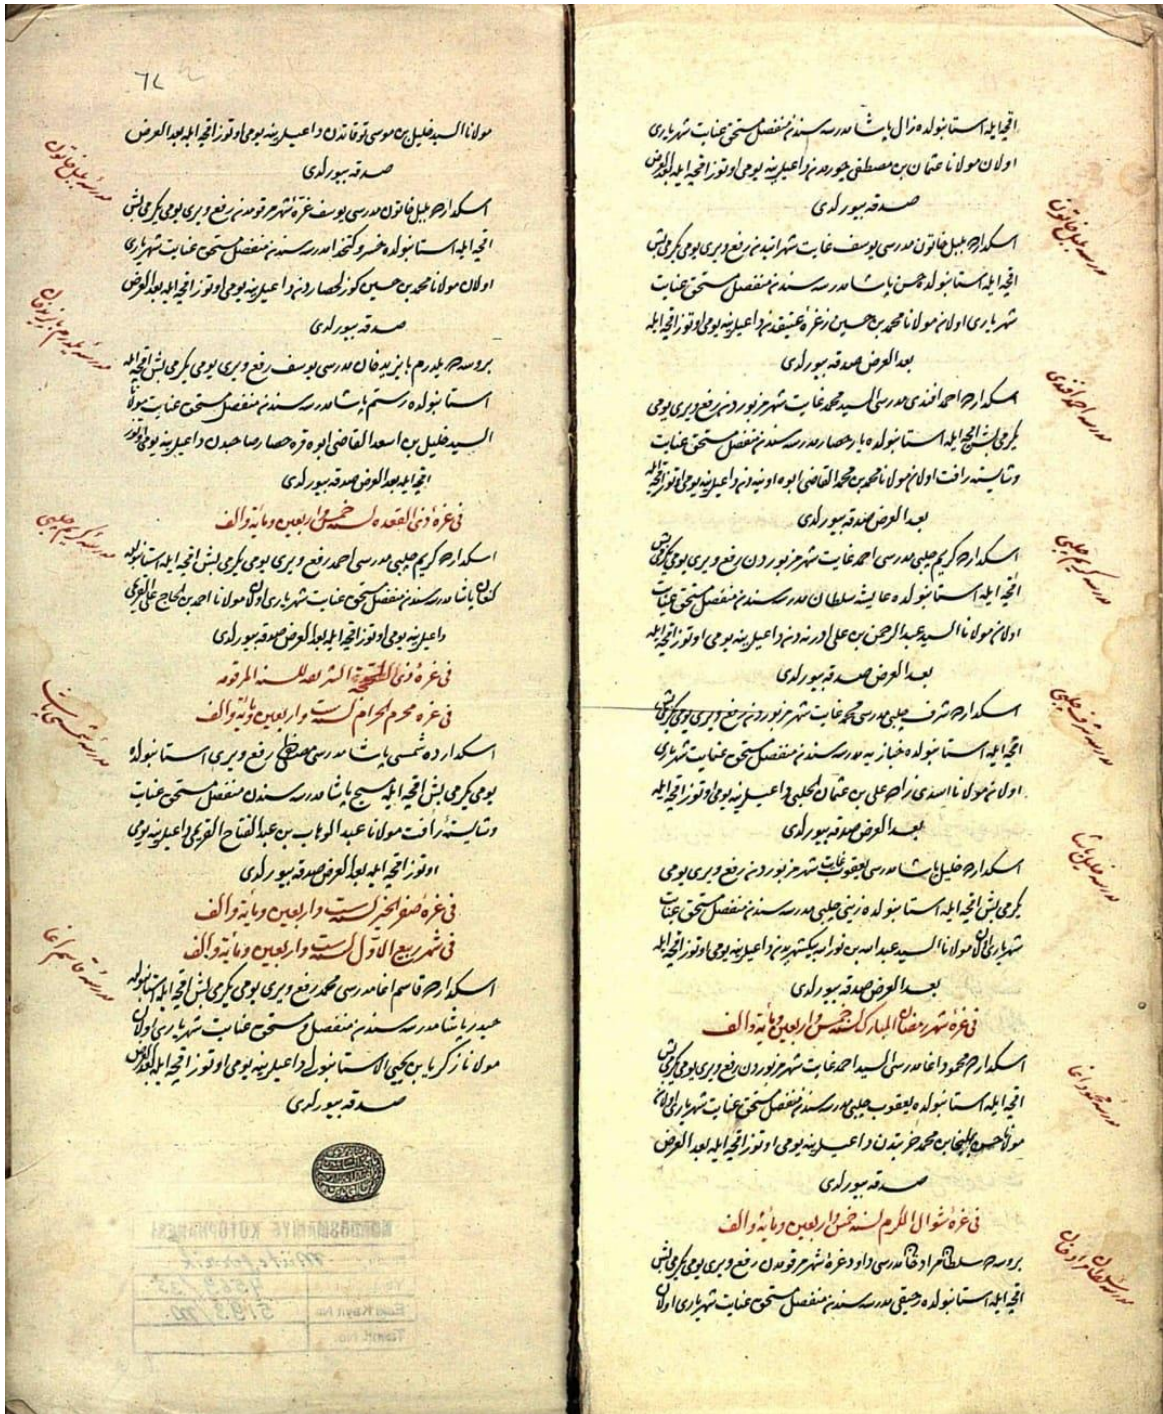 اقچه ایله استانبولده زال پاشا مدرسه سندن منفصل مستحق عنایت شهریاری
اولان مولانا عثمان بن مصطفی چورمدن داعیلرینه یومی اوتوز اقچه ایله بعد العرض
صدقه بیورلدی
مدرسهٔ بلبل خاتون
اسکدارده بلبل خاتون مدرسی یوسف غایت شهر اتیدن رفع ویری یومی یکرمی بش
اقچه ایله استانبولده حسن پاشا مدرسه سندن منفصل مستحق عنایت
شهریاری اولان مولانا محمد بن حسین داعیلرینه یومی اوتوز اقچه ایله
بعد العرض صدقه بیورلدی
مدرسه احمد افندی
اسکدارده احمد افندی مدرسی السید محمد غایت شهر مزبوردن رفع ویری یومی
یکرمی بش اقچه ایله استانبولده مدرسه سندن منفصل مستحق عنایت
وشایسته رافت اولان مولانا محمد بن محمد القاضی داعیلرینه یومی اوتوز اقچه ایله
بعد العرض صدقه بیورلدی
مدرسه کریم چلبی
اسکدارده کریم چلبی مدرسی احمد غایت شهر مزبوردن رفع ویری یومی یکرمی بش
اقچه ایله استانبولده عایشه سلطان مدرسه سندن منفصل مستحق عنایت
اولان مولانا السید عبد الرحمن بن علی ادرنه دن داعیلرینه یومی اوتوز اقچه ایله
بعد العرض صدقه بیورلدی
مدرسه شرف چلبی
اسکدارده شرف چلبی مدرسی محمد غایت شهر مزبوردن رفع ویری یومی یکرمی بش
اقچه ایله استانبولده خبازیه مدرسه سندن منفصل مستحق عنایت شهریاری
اولان مولانا اسدی زاده علی بن عثمان الحلبی داعیلرینه یومی اوتوز اقچه ایله
بعد العرض صدقه بیورلدی
مدرسه خلیل پاشا
اسکدارده خلیل پاشا مدرسی یعقوب غایت شهر مزبوردن رفع ویری یومی
یکرمی بش اقچه ایله استانبولده زینی چلبی مدرسه سندن منفصل مستحق عنایت
شهریاری اولان مولانا السید عبد الله بن نور الله یکیشهریدن داعیلرینه یومی اوتوز اقچه ایله
بعد العرض صدقه بیورلدی
فی غرهٔ شهر رمضان المبارک لسنه خمس واربعین ومائة والف
مدرسه محمود اغا
اسکدارده محمود اغا مدرسی السید احمد غایت شهر مزبوردن رفع ویری یومی یکرمی بش
اقچه ایله استانبولده یعقوب چلبی مدرسه سندن منفصل مستحق عنایت شهریاری اولان
مولانا حسن بن محمد داعیلرینه یومی اوتوز اقچه ایله بعد العرض
صدقه بیورلدی
فی غرهٔ شوال المکرم لسنه خمس واربعین ومائة والف
مدرسه سلطان مراد خان
بروسه ده سلطان مراد خان مدرسی داود غرهٔ شهر مرقومدن رفع ویری یومی یکرمی بش
اقچه ایله استانبولده رحیقی مدرسه سندن منفصل مستحق عنایت شهریاری اولان
مولانا السید خلیل بن موسی توقاتدن داعیلرینه یومی اوتوز اقچه ایله بعد العرض
صدقه بیورلدی
مدرسهٔ بلبل خاتون
اسکدارده بلبل خاتون مدرسی یوسف غرهٔ شهر مرقومدن رفع ویری یومی یکرمی بش
اقچه ایله استانبولده خسرو کتخدا مدرسه سندن منفصل مستحق عنایت شهریاری
اولان مولانا محمد بن حسین کوزلحصاردن داعیلرینه یومی اوتوز اقچه ایله بعد العرض
صدقه بیورلدی
مدرسهٔ یلدرم بایزید خان
بروسه ده یلدرم بایزید خان مدرسی یوسف رفع ویری یومی یکرمی بش اقچه ایله
استانبولده رستم پاشا مدرسه سندن منفصل مستحق عنایت مولانا
السید خلیل بن اسعد القاضی قره حصار صاحبدن داعیلرینه یومی اوتوز
اقچه ایله بعد العرض صدقه بیورلدی
فی غرهٔ ذی القعده لسنه خمس واربعین ومائة والف
مدرسهٔ کریم چلبی
اسکدارده کریم چلبی مدرسی احمد رفع ویری یومی یکرمی بش اقچه ایله استانبولده
کنعان پاشا مدرسه سندن منفصل مستحق عنایت شهریاری اولان مولانا احمد بن الحاج علی القریمی
داعیلرینه یومی اوتوز اقچه ایله بعد العرض صدقه بیورلدی
فی غرهٔ ذی الحجة الشریفه لسنه المرقومه
فی غره محرم الحرام لسنه ست واربعین ومائة والف
مدرسهٔ شمسی پاشا
اسکدارده شمسی پاشا مدرسی مصطفی رفع ویری استانبولده
یومی یکرمی بش اقچه ایله مسیح پاشا مدرسه سندن منفصل مستحق عنایت
وشایستهٔ رافت مولانا عبد الوهاب بن عبد الفتاح القریمی داعیلرینه یومی
اوتوز اقچه ایله بعد العرض صدقه بیورلدی
فی غرهٔ صفر الخیر لسنه ست واربعین ومائة والف
فی شهر ربیع الاول لسنه ست واربعین ومائة والف
مدرسهٔ قاسم اغا
اسکدارده قاسم اغا مدرسی محمد رفع ویری یومی یکرمی بش اقچه ایله استانبولده
حیدر پاشا مدرسه سندن منفصل ومستحق عنایت شهریاری اولان
مولانا زکریا بن یحیی الاستانبولی داعیلرینه یومی اوتوز اقچه ایله بعد العرض
صدقه بیورلدی